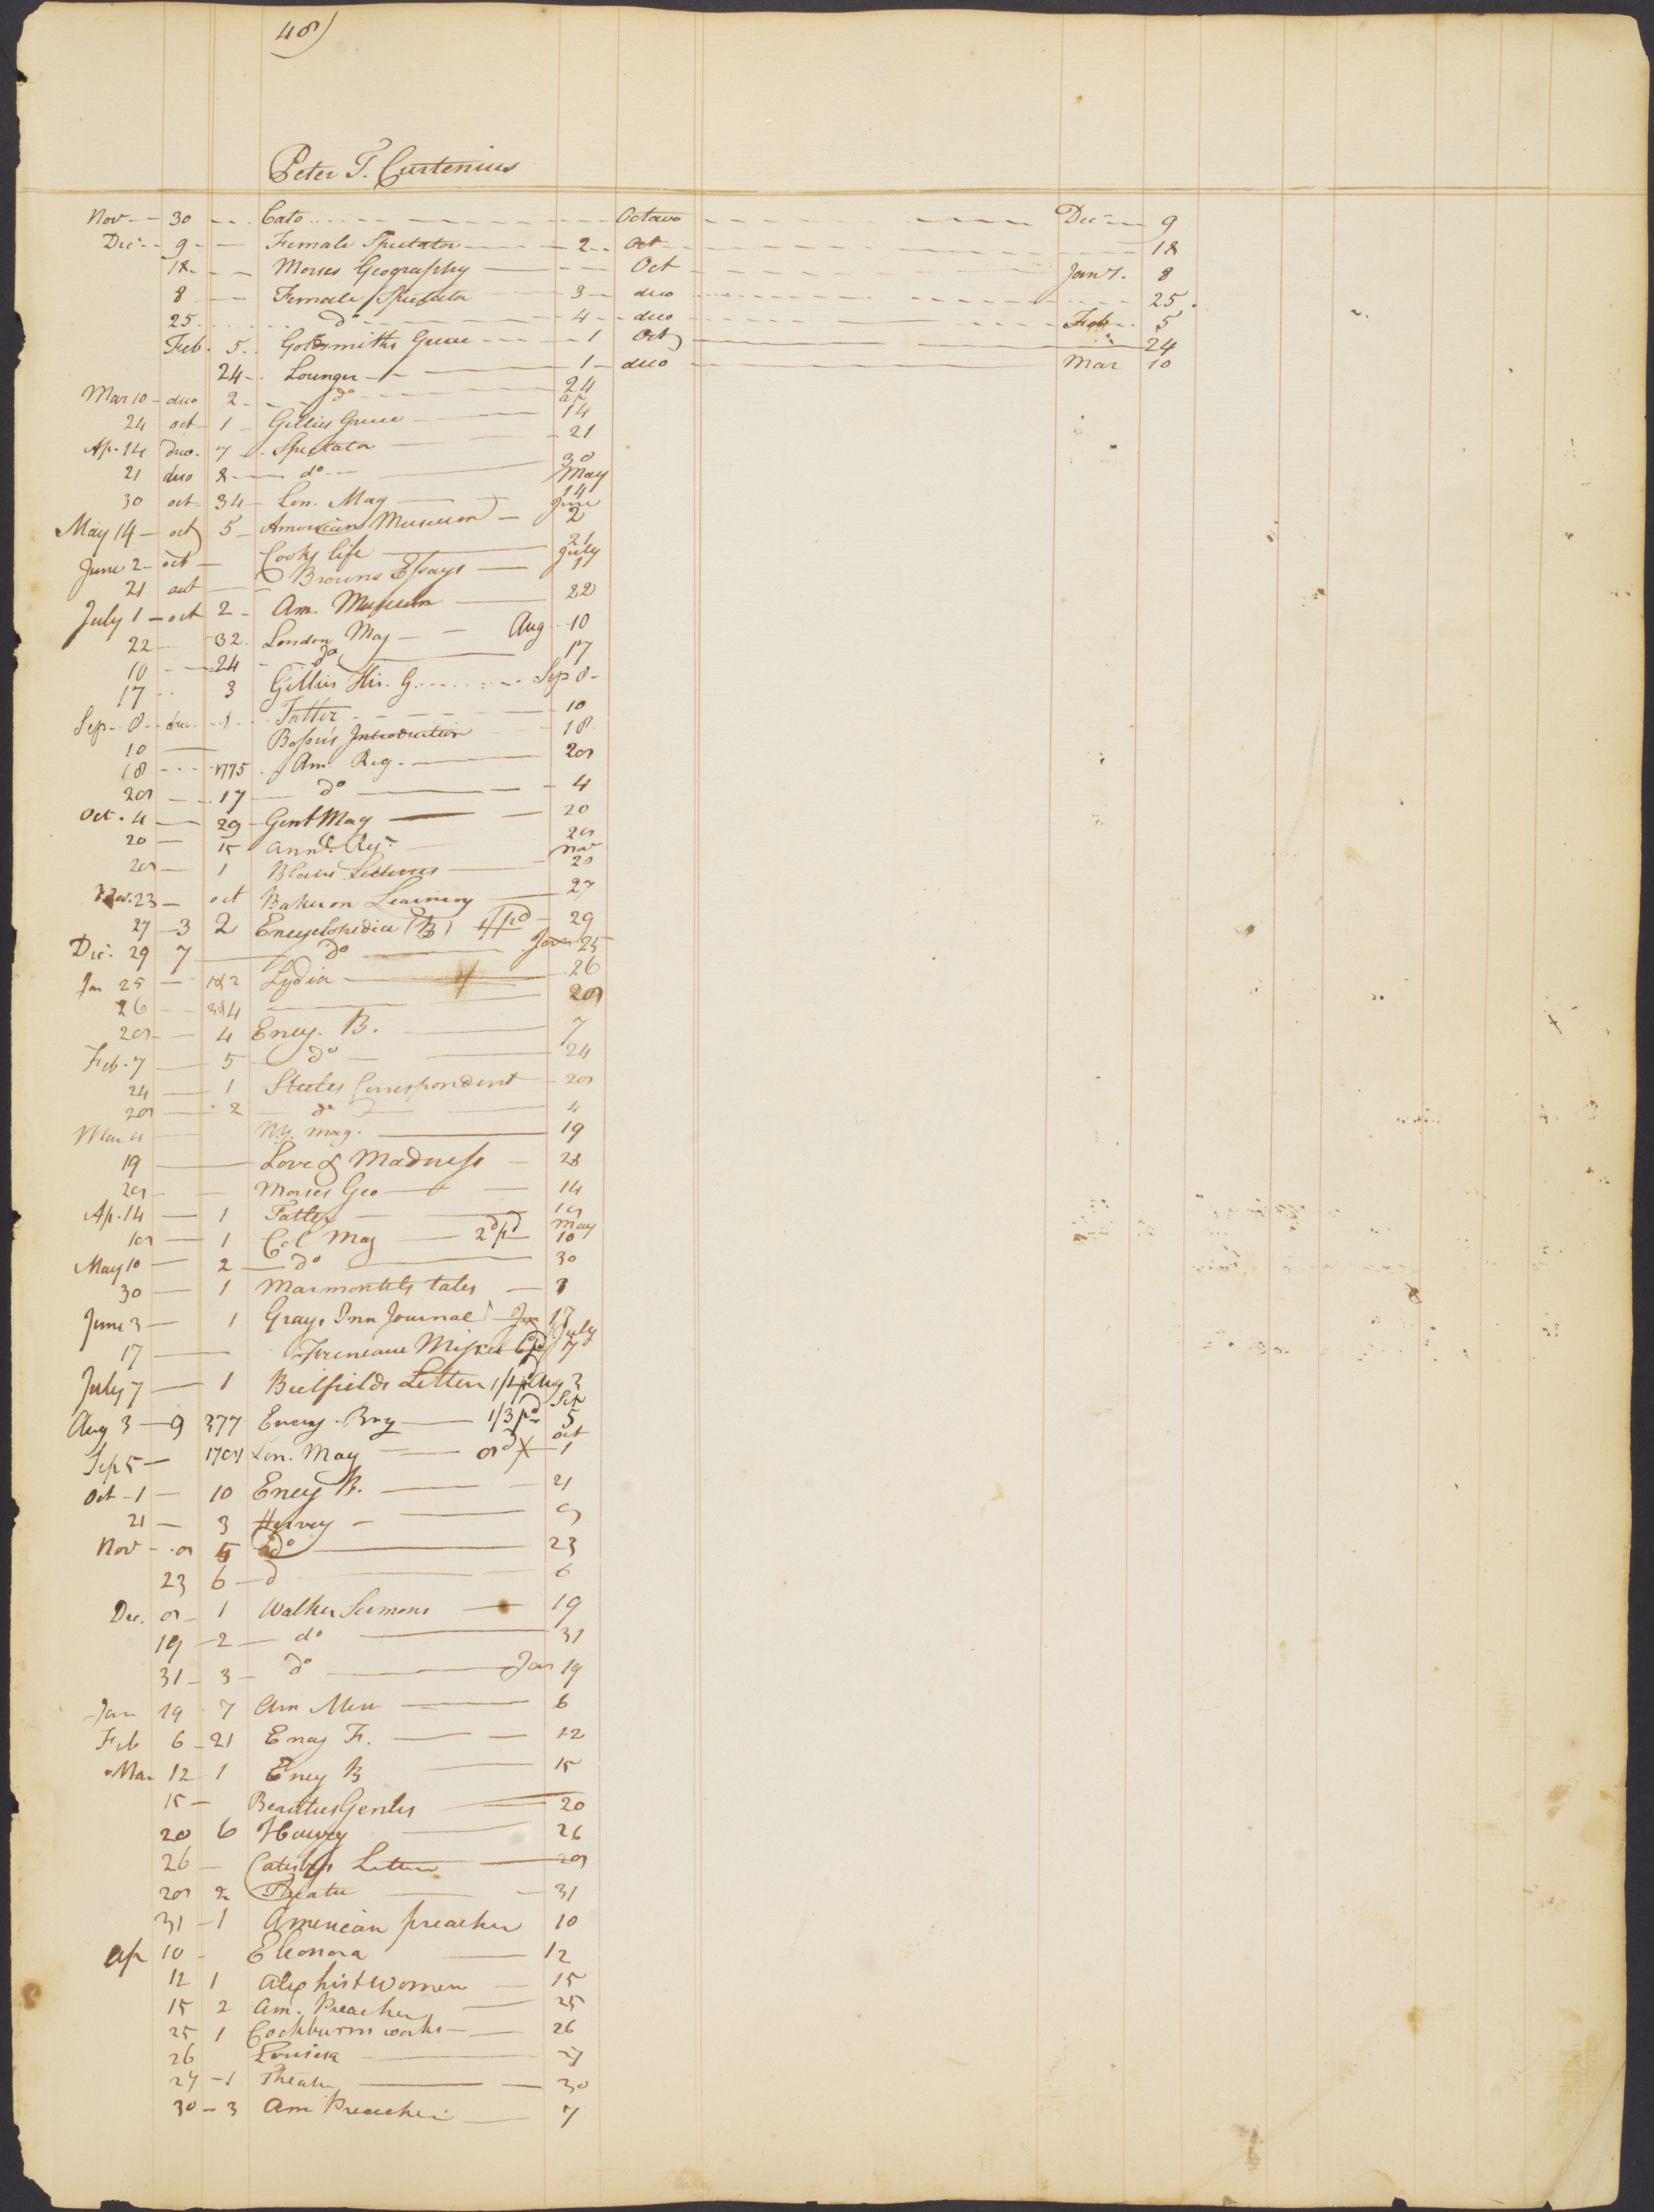 48)
Peter T. Curtenius
Nov 30 Cato Octavo Dec 9
Dec 9 Female Spectator 2 Oct 18
18 Morses Geography Oct Jany. 8
8 Female Spectator 3 duo 25
25 do 4 duo Feb 5
Feb. 5 Goldsmiths Greece 1 Oct 24
24 Lounger 1 duo Mar 10
Mar 10 duo 2 do 24
24 oct 1 Gillies Greece ap 14
Ap. 14 duo. 7 Spectator 21
21 duo 8 do 30
30 oct 34 Lon. Mag May 14
May 14 oct 5 American Museum June 2
June 2 oct Cooks life 21
21 oct Browns Essays July 1
July 1 oct 2 Am. Museum 22
22 32 London Mag Aug 10
10 24 do 17
17 3 Gillies His. G. Sep 8
Sep. 8 duo 1 Tatler 10
10 Introduction 18
18 1775 An. Reg. 28
28 17 do 4
Oct. 4 29 Gent Mag 20
20 15 Annl. Reg. 28
28 1 Blairs Lectures Nov 20
Nov. 23 oct Baker on Learning 27
27 3 2 Encyclopedia (B) pd 29
Dec. 29 7 do Jan 25
Jan 25 1&2 Lydia 26
26 3&4 28
28 4 Ency. B. 7
Feb. 7 5 do 24
24 1 Steeles Correspondent 28
28 2 do 4
Mar 4 N.Y. Mag. 19
19 Love & Madness 28
28 Morses Geo 14
Ap. 14 1 Tatler 18
18 1 Col Mag 2d pd May 10
May 10 2 do 30
30 1 Marmontels tales 3
June 3 1 Grays Inn Journal 17
17 Miscel July 7
July 7 1 Bielfields Letters Aug 3
Aug 3 9 377 Ency. 1/3 pd Sep 5
Sep 5 Lon. Mag 8d oct 1
Oct 1 10 Ency B. 21
21 3 Hervey 8
Nov 8 5 do 23
23 6 d 6
Dec. 8 1 Walker Sermons 19
19 2 do 31
31 3 do Jan 19
Jan 19 7 Am Mus 6
Feb 6 21 Ency F. 12
Mar 12 1 Ency B 15
15 Beauties Gentle 20
20 6 Hervey 26
26 Catesbys Letters 28
28 2 Theatre 31
31 1 American preacher 10
ap 10 Eleonora 12
12 1 Alex hist Women 15
15 2 Am. Preacher 25
25 1 Cockburns works 26
26 Louisa 27
27 1 Theatre 30
30 3 Am Preacher 7